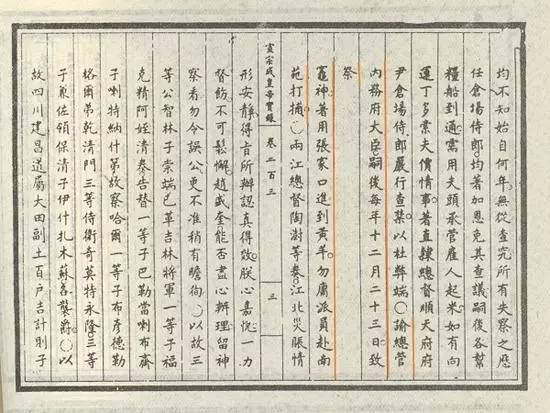 均不知始自何年無從查究所有失察之歷
任倉場侍郎均著加恩免其查議嗣後各幫
糧船到通需用夫頭承管雇人起米如有向
運丁多索夫價情事著直隸總督順天府府
尹倉場侍郎嚴行查禁以杜弊端○諭總管
內務府大臣嗣後每年十二月二十三日致
祭
竈神著用張家口進到黃羊勿庸派員赴南
苑打捕○兩江總督陶澍等奏江北災賑情
宣宗成皇帝實錄 卷二百三 三
形安靜得旨所辦認真得效朕心嘉悅一力
督飭不可鬆懈趙盛奎能否盡心辦理留神
察看勿令誤公更不准稍有瞻徇○以故三
等公智林子崇端巴革吉林將軍一等子福
克精阿姪清泰告替一等子巴勒當喇布齋
子喇特納什第故察哈爾一等子布彥德勒
格爾弟乾清門三等侍衛奇莫特永隆三等
子兼佐領保清子伊什扎木蘇各襲爵○以
故四川建昌道屬大田副土百戶吉計則子